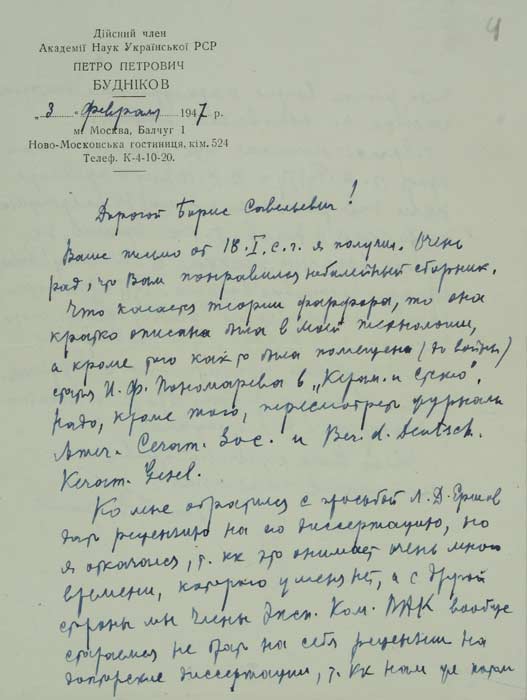 4
Дійсний член
Академії Наук Української РСР
ПЕТРО ПЕТРОВИЧ
БУДНІКОВ
„3" февраля 1947 р.
м. Москва, Балчуг 1
Ново-Московська гостиниця, кім. 524
Телеф. К-4-10-20.
Дорогой Борис Савельевич!
Ваше письмо от 18.I.с.г. я получил. Очень
рад, что Вам понравился юбилейный сборник.
Что касается теории фарфора, то она
кратко описана была в моей технологии,
а кроме того как-то была помещена (до войны)
статья И. Ф. Пономарева в „Керам. и стекло".
Надо, кроме того, пересмотреть журналы
Amer. Ceram. Soc. и Ber. d. Deutsch.
Keram. Gesel.
Ко мне обратился с просьбой Л. Д. Ершов
дать рецензию на его диссертацию, но
я отказался, т. кк это отнимает очень много
времени, которого у меня нет, а с другой
стороны мы члены Эксп. Ком. ВАК вообще
стараемся не брать на себя рецензии на
докторские диссертации, т. кк нам уже